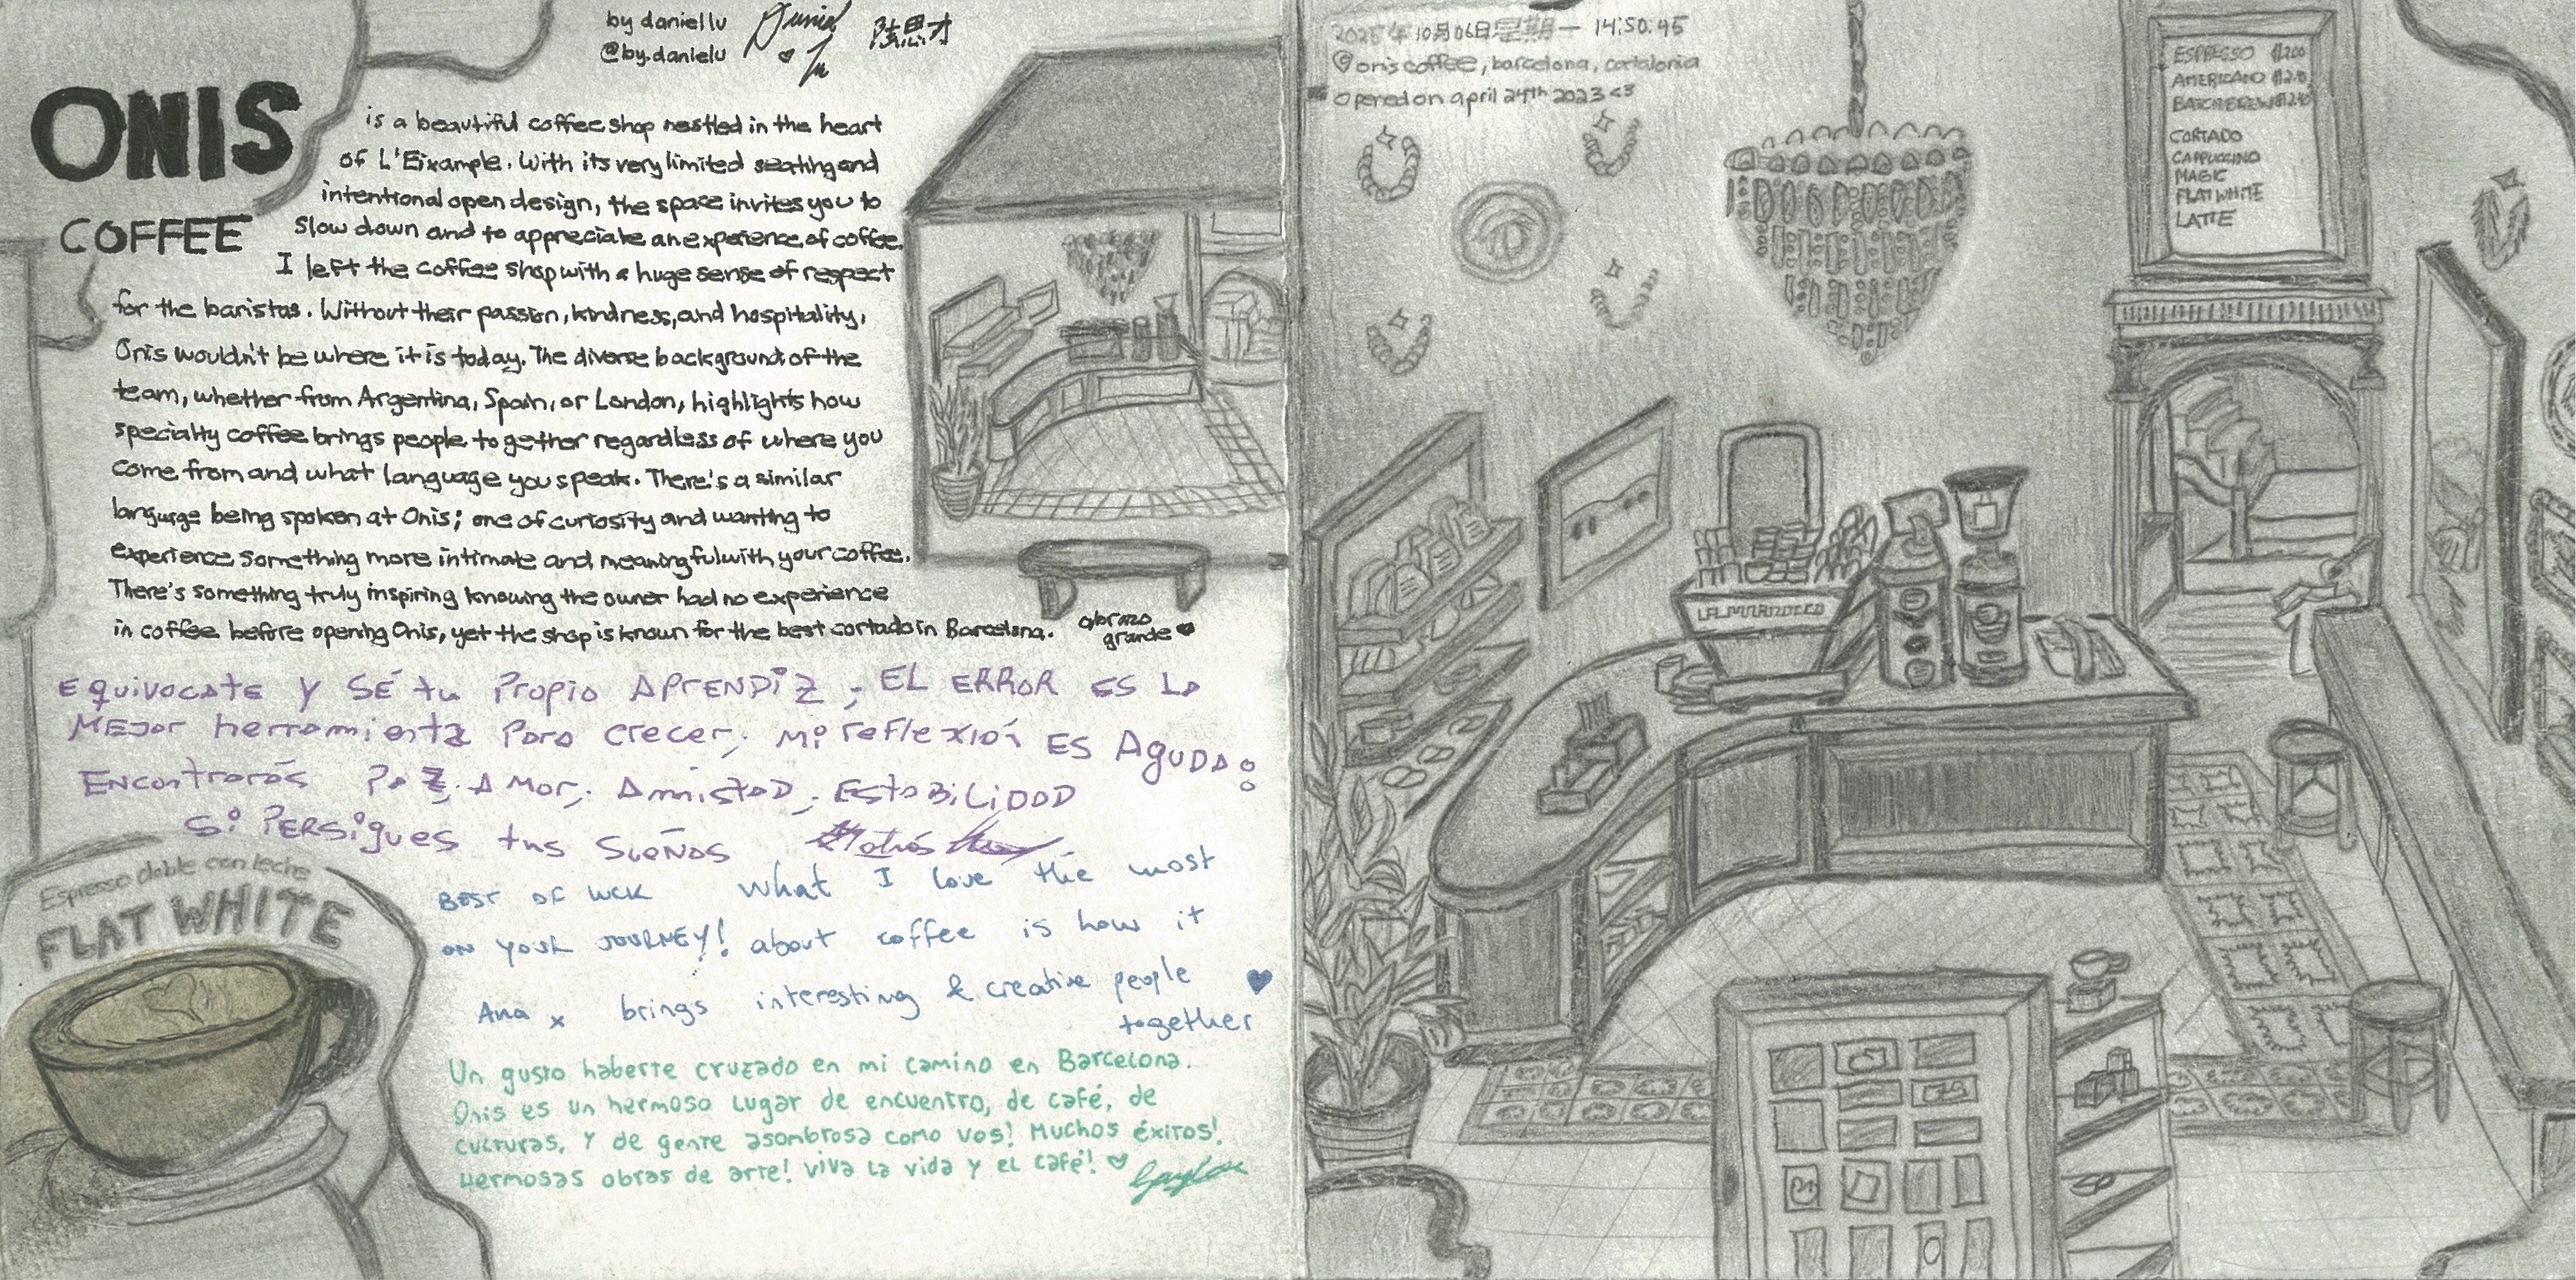 by daniel lu
@by.danielu
Daniel Lu
陈思才
ONIS
COFFEE
is a beautiful coffee shop nestled in the heart
of L'Eixample. With its very limited seating and
intentional open design, the space invites you to
slow down and to appreciate an experience of coffee.
I left the coffee shop with a huge sense of respect
for the baristas. Without their passion, kindness, and hospitality,
Onis wouldn't be where it is today. The diverse background of the
team, whether from Argentina, Spain, or London, highlights how
specialty coffee brings people together regardless of where you
come from and what language you speak. There's a similar
language being spoken at Onis; one of curiosity and wanting to
experience something more intimate and meaningful with your coffee.
There's something truly inspiring knowing the owner had no experience
in coffee before opening Onis, yet the shop is known for the best cortado in Barcelona.
abrazo
grande ♥
Equivocate y SÉ tu Propio APRENDIZ, EL ERROR ES LA
MEJOR herramienta Para crecer, Mi reflexión ES AGUDA:
ENContrarás PAZ, AMor, AmistaD, EstaBiLiDAD
Si PERSigues tus SUEÑOS
BEST OF LUCK
ON YOUR JOURNEY!
Ana x
What I love the most
about coffee is how it
brings interesting & creative people ♥
together
Un gusto haberte cruzado en mi camino en Barcelona.
Onis es un hermoso lugar de encuentro, de café, de
culturas, y de gente asombrosa como vos! Muchos éxitos!
Hermosas obras de arte! viva la vida y el café! ♡
Espresso doble con leche
FLAT WHITE
2025年10月06日星期一 14:50.45
onis coffee, barcelona, catalonia
opened on april 24th 2023 <3
ESPRESSO
AMERICANO
BATCH BREW
CORTADO
CAPPUCCINO
MAGIC
FLAT WHITE
LATTE
LA MARZOCCO